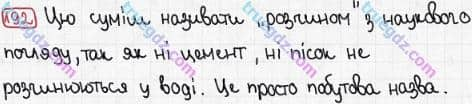 192 Цю суміш називати „розчином" з наукового
погляду, так як ні цемент, ні пісок не
розчинюються у воді. Це просто побутова назва.